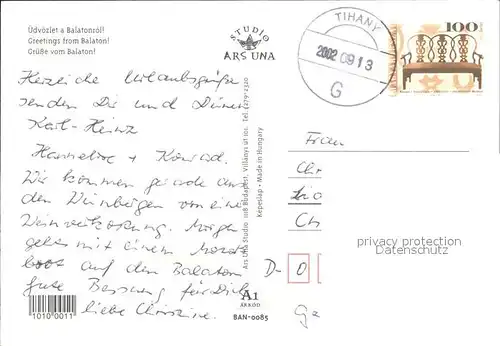 Üdvözlet a Balatonról!
Greetings from Balaton!
Grüße vom Balaton!
STUDIO
ARS UNA
TIHANY
2002 09 13
G
100
Herzliche Urlaubsgrüße
senden Dir und Deinem
Karl-Heinz
Hannelore + Konrad.
Wir kommen gerade aus
den Weinbergen von einer
Weinverkostung. Morgen
geht's mit einem
boot auf den Balaton
Gute Besserung für Dich
liebe Christine.
Ars Una Studio 1118 Budapest, Villányi út 101. Tel.: (279-)2320
Képeslap • Made in Hungary
Frau
Chr
Ch
D- 0
Ga
privacy protection
Datenschutz
1010 0011
A1
ÁRKÓD
BAN-0085